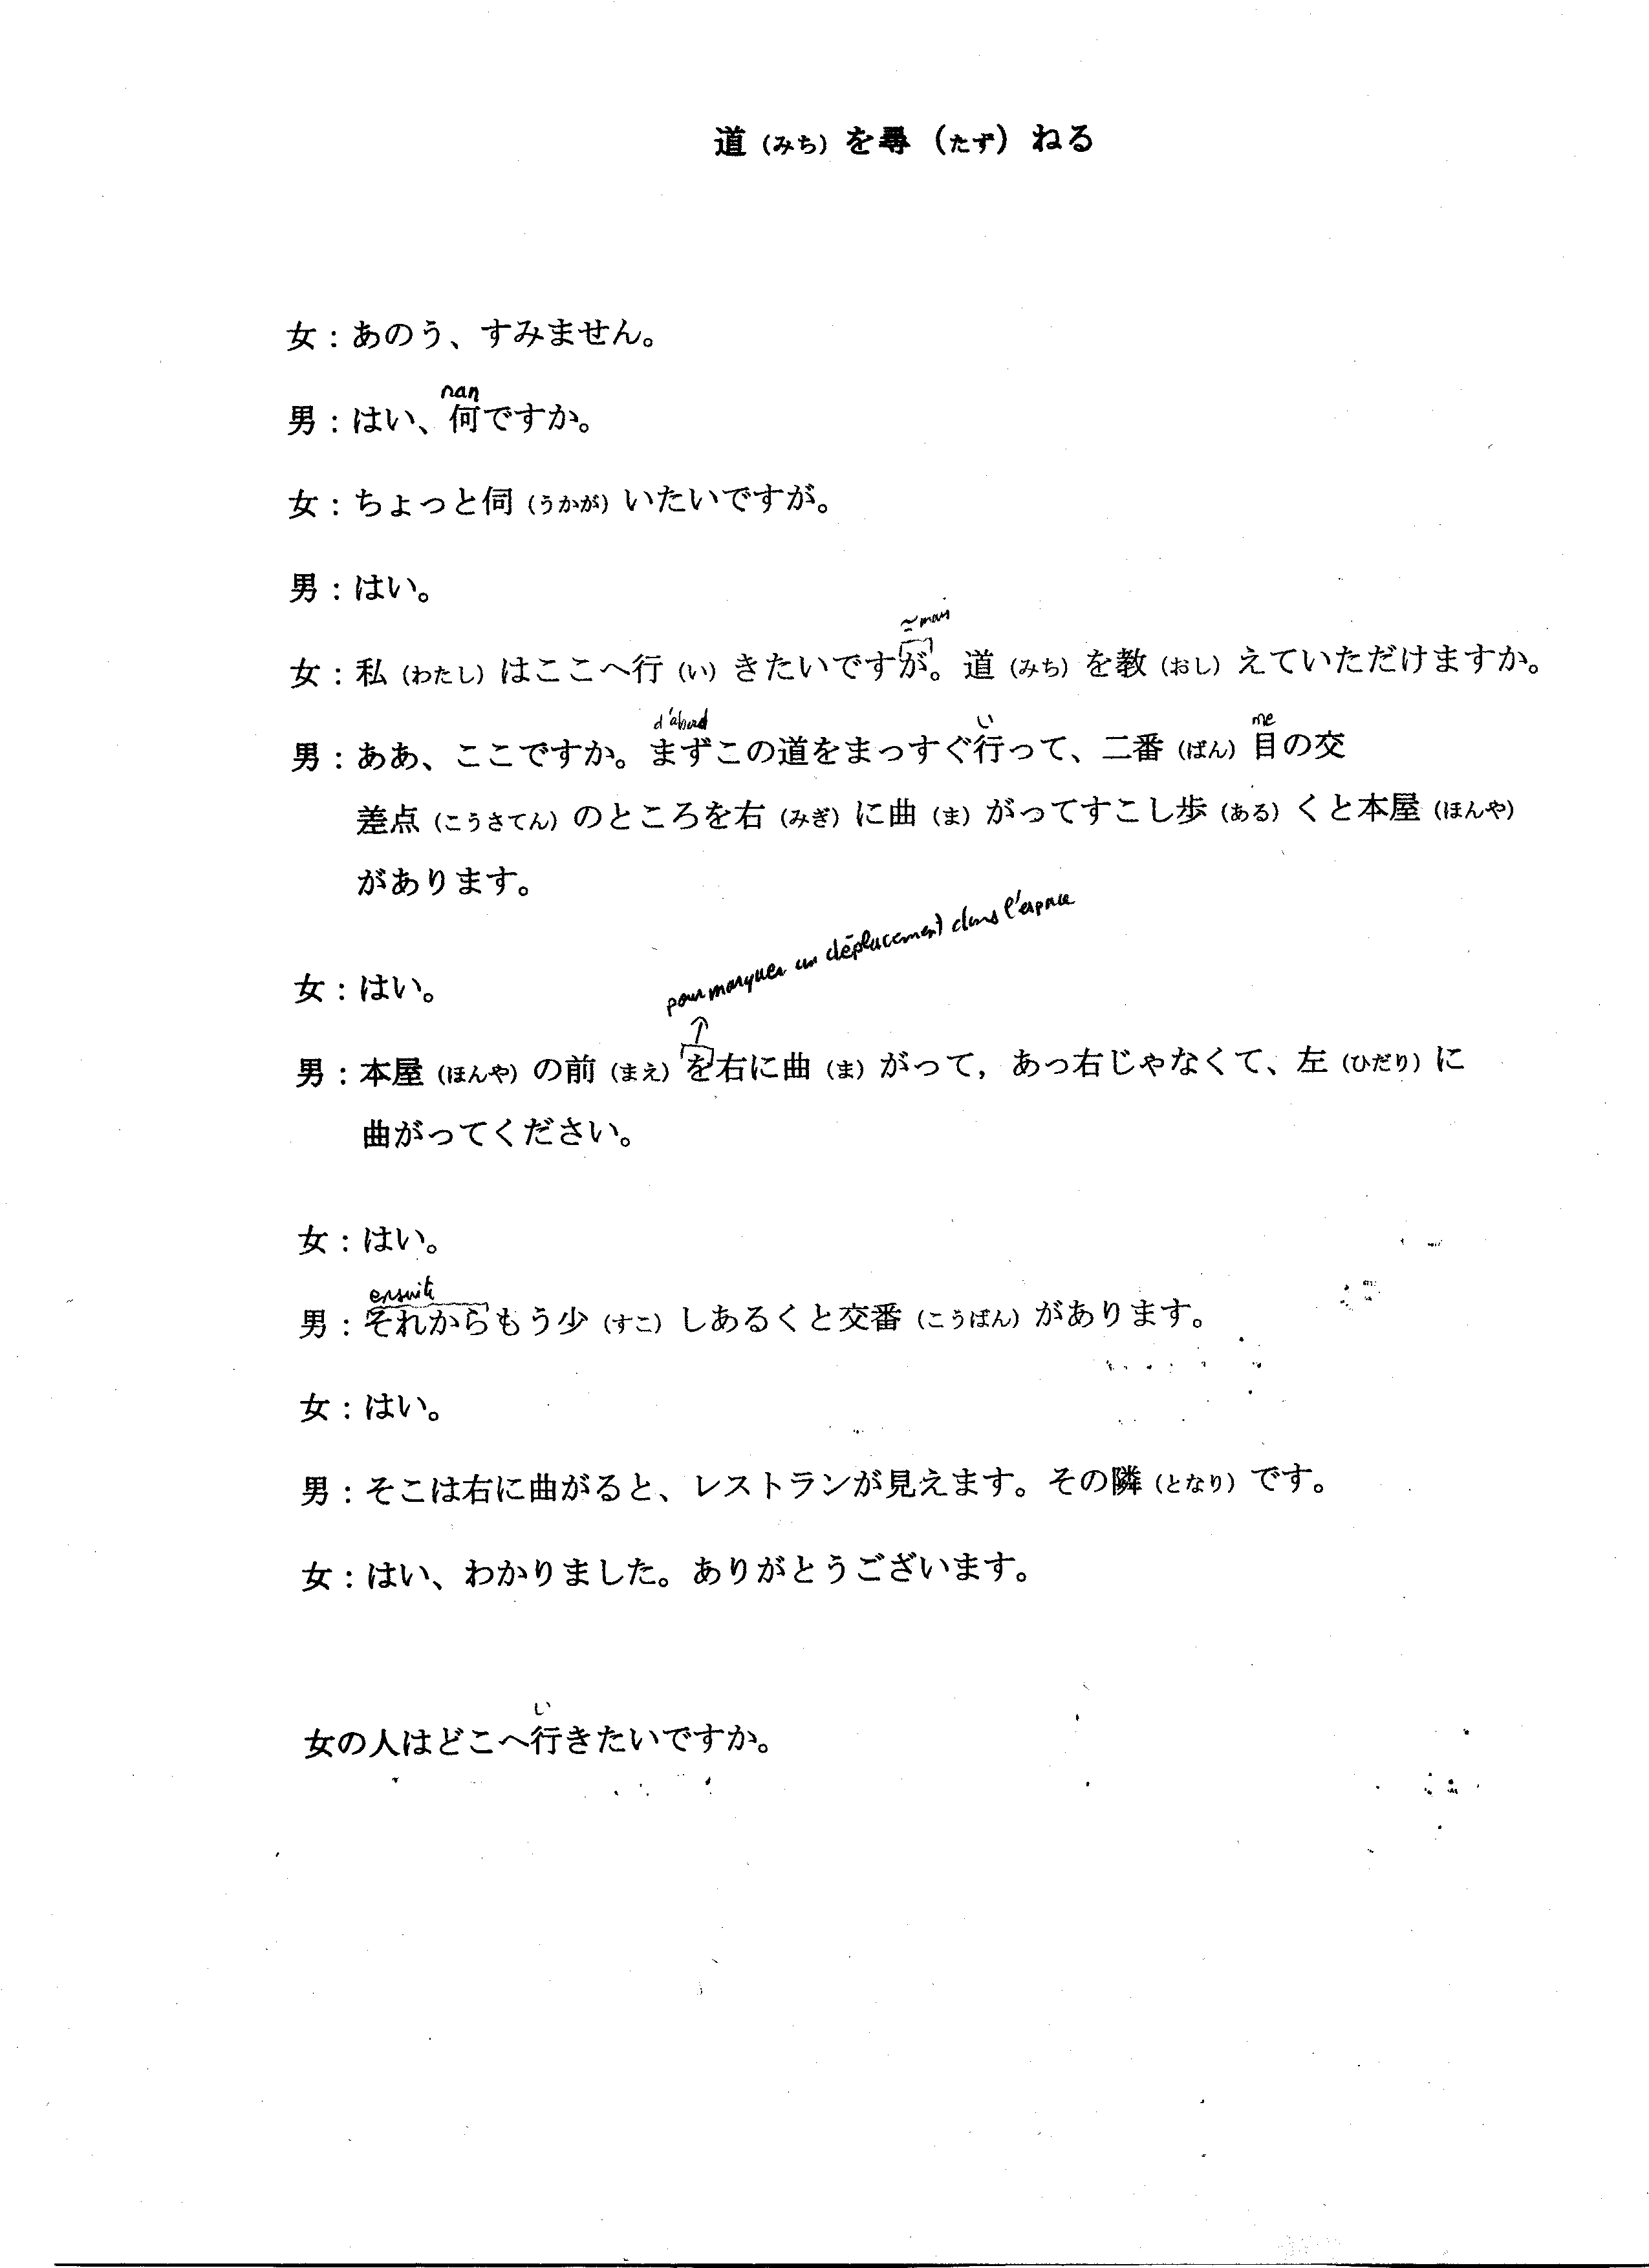 道（みち）を尋（たず）ねる
女：あのう、すみません。
nan
男：はい、何ですか。
女：ちょっと伺（うかが）いたいですが。
男：はい。
≃mais
女：私（わたし）はここへ行（い）きたいですが。道（みち）を教（おし）えていただけますか。
d'abord い me
男：ああ、ここですか。まずこの道をまっすぐ行って、二番（ばん）目の交
差点（こうさてん）のところを右（みぎ）に曲（ま）がってすこし歩（ある）くと本屋（ほんや）
があります。
pour marquer un déplacement dans l'espace
女：はい。
↑
男：本屋（ほんや）の前（まえ）を右に曲（ま）がって，あっ右じゃなくて、左（ひだり）に
曲がってください。
女：はい。
ensuite
男：それからもう少（すこ）しあるくと交番（こうばん）があります。
女：はい。
男：そこは右に曲がると、レストランが見えます。その隣（となり）です。
女：はい、わかりました。ありがとうございます。
い
女の人はどこへ行きたいですか。